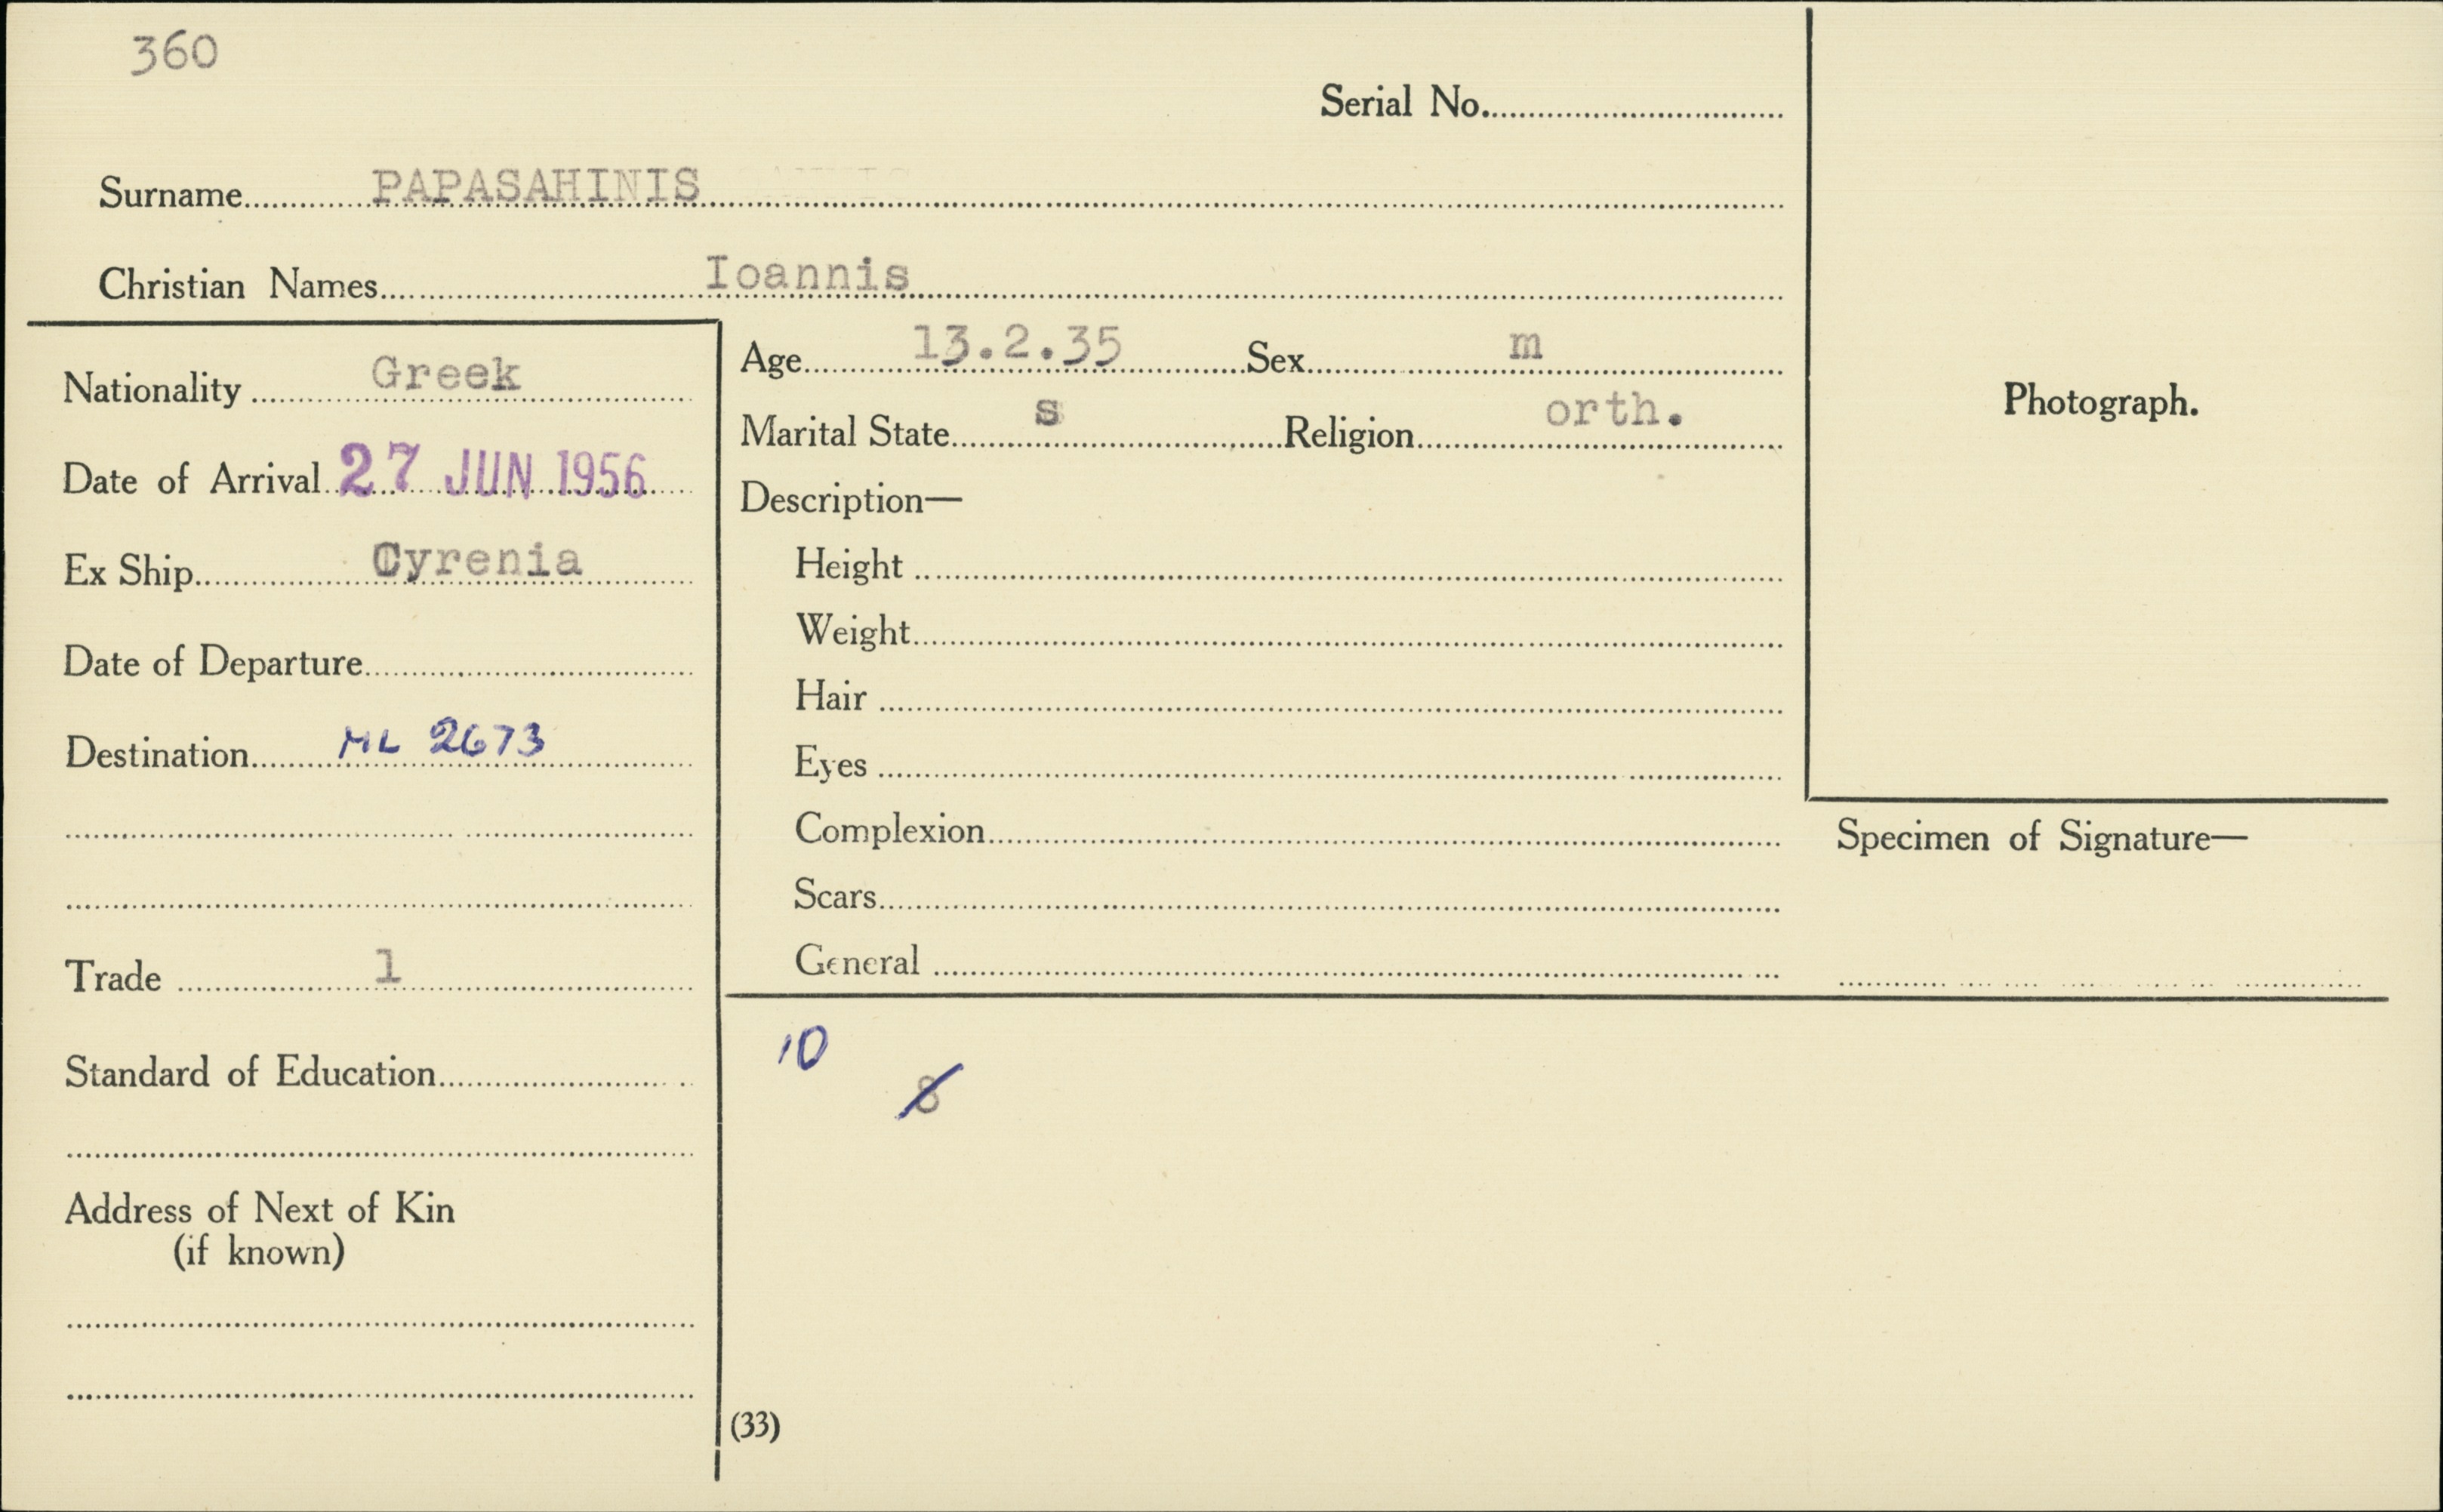 360
Serial No.
Surname PAPASAHINIS
Christian Names Ioannis
Nationality Greek
Date of Arrival 27 JUN 1956
Ex Ship Cyrenia
Date of Departure
Destination ML 2673
Trade 1
Standard of Education
Address of Next of Kin
(if known)
Age 13.2.35 Sex m
Marital State s Religion orth.
Description—
Height
Weight
Hair
Eyes
Complexion
Scars
General
Photograph.
Specimen of Signature—
10
8
(33)